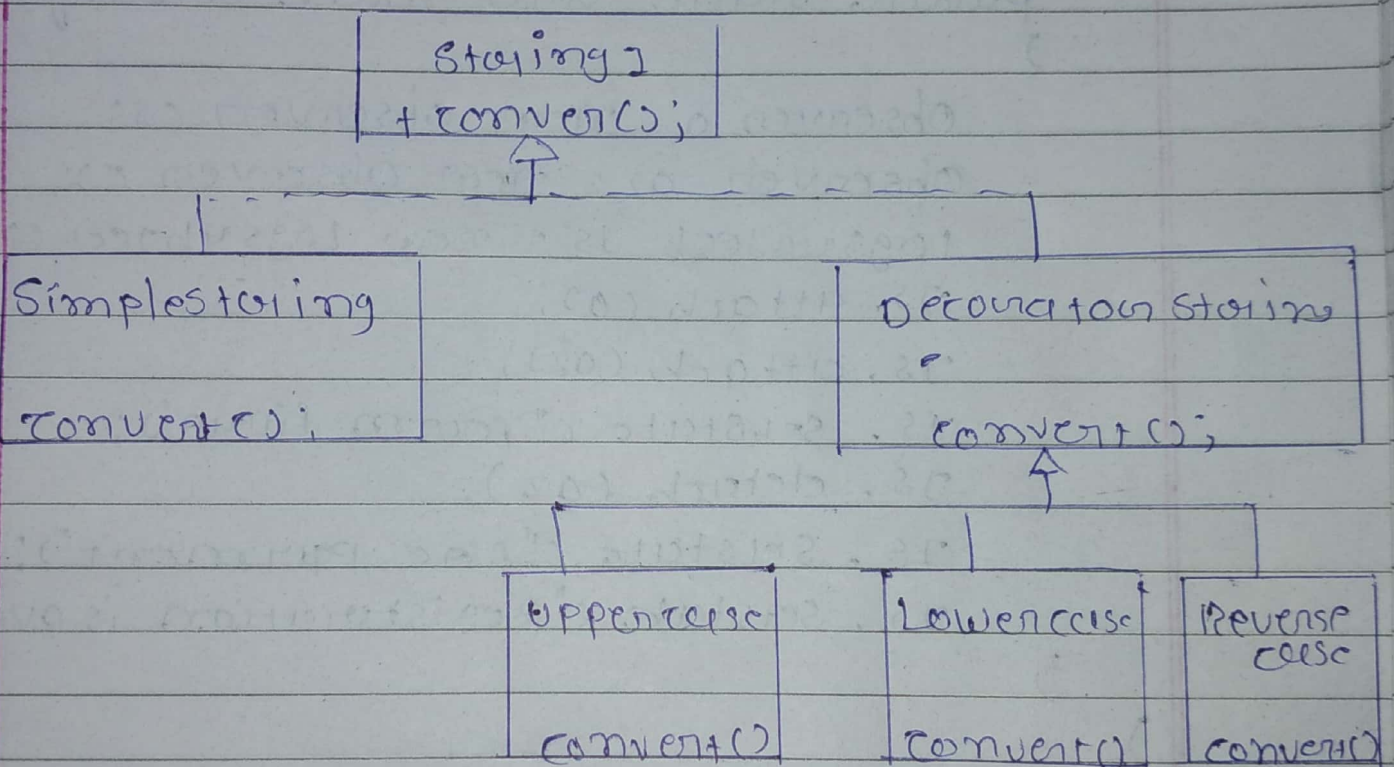 String I
+ conver();
Simplestring
convert();
Decorator String
convert();
Uppercase
convert()
Lowercase
convert()
Reverse
case
convert()